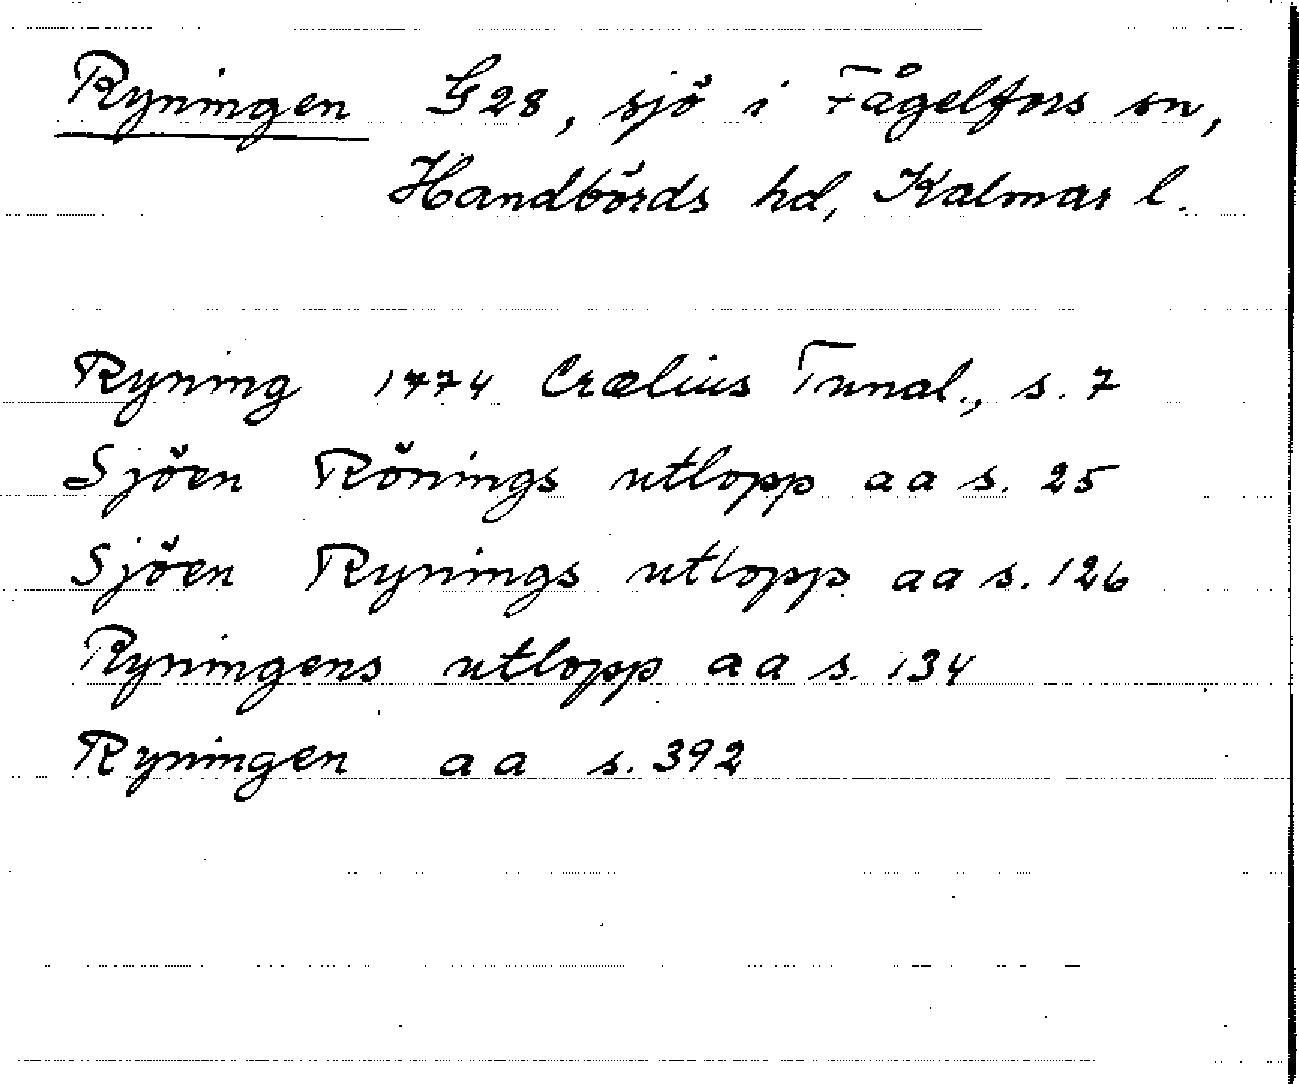 Ryningen G28, sjö i Fågelfors sn,
Handbörds hd, Kalmar l.
Ryning 1774 Crælius Tunal., s. 7
Sjöen Rönings utlopp aa s. 25
Sjöen Rynings utlopp aa s. 126
Ryningens utlopp aa s. 134
Ryningen aa s. 392